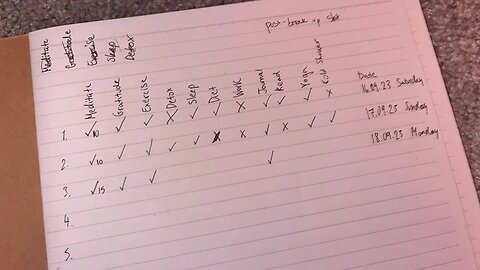 Meditate
Gratitude
Exercise
Sleep
Detox
post-break up
Meditate
Gratitude
Exercise
Detox
Sleep
Diet
Work
Journal
Read
Yoga
Cold Shower
Date
1. ✓10 ✓ ✓ X ✓ ✓ X ✓ ✓ ✓ X 16.09.23 Saturday
2. ✓10 ✓ ✓ ✓ ✓ X X ✓ X ✓ ✓ 17.09.23 Sunday
3. ✓15 ✓ ✓ ✓ 18.09.23 Monday
4.
5.